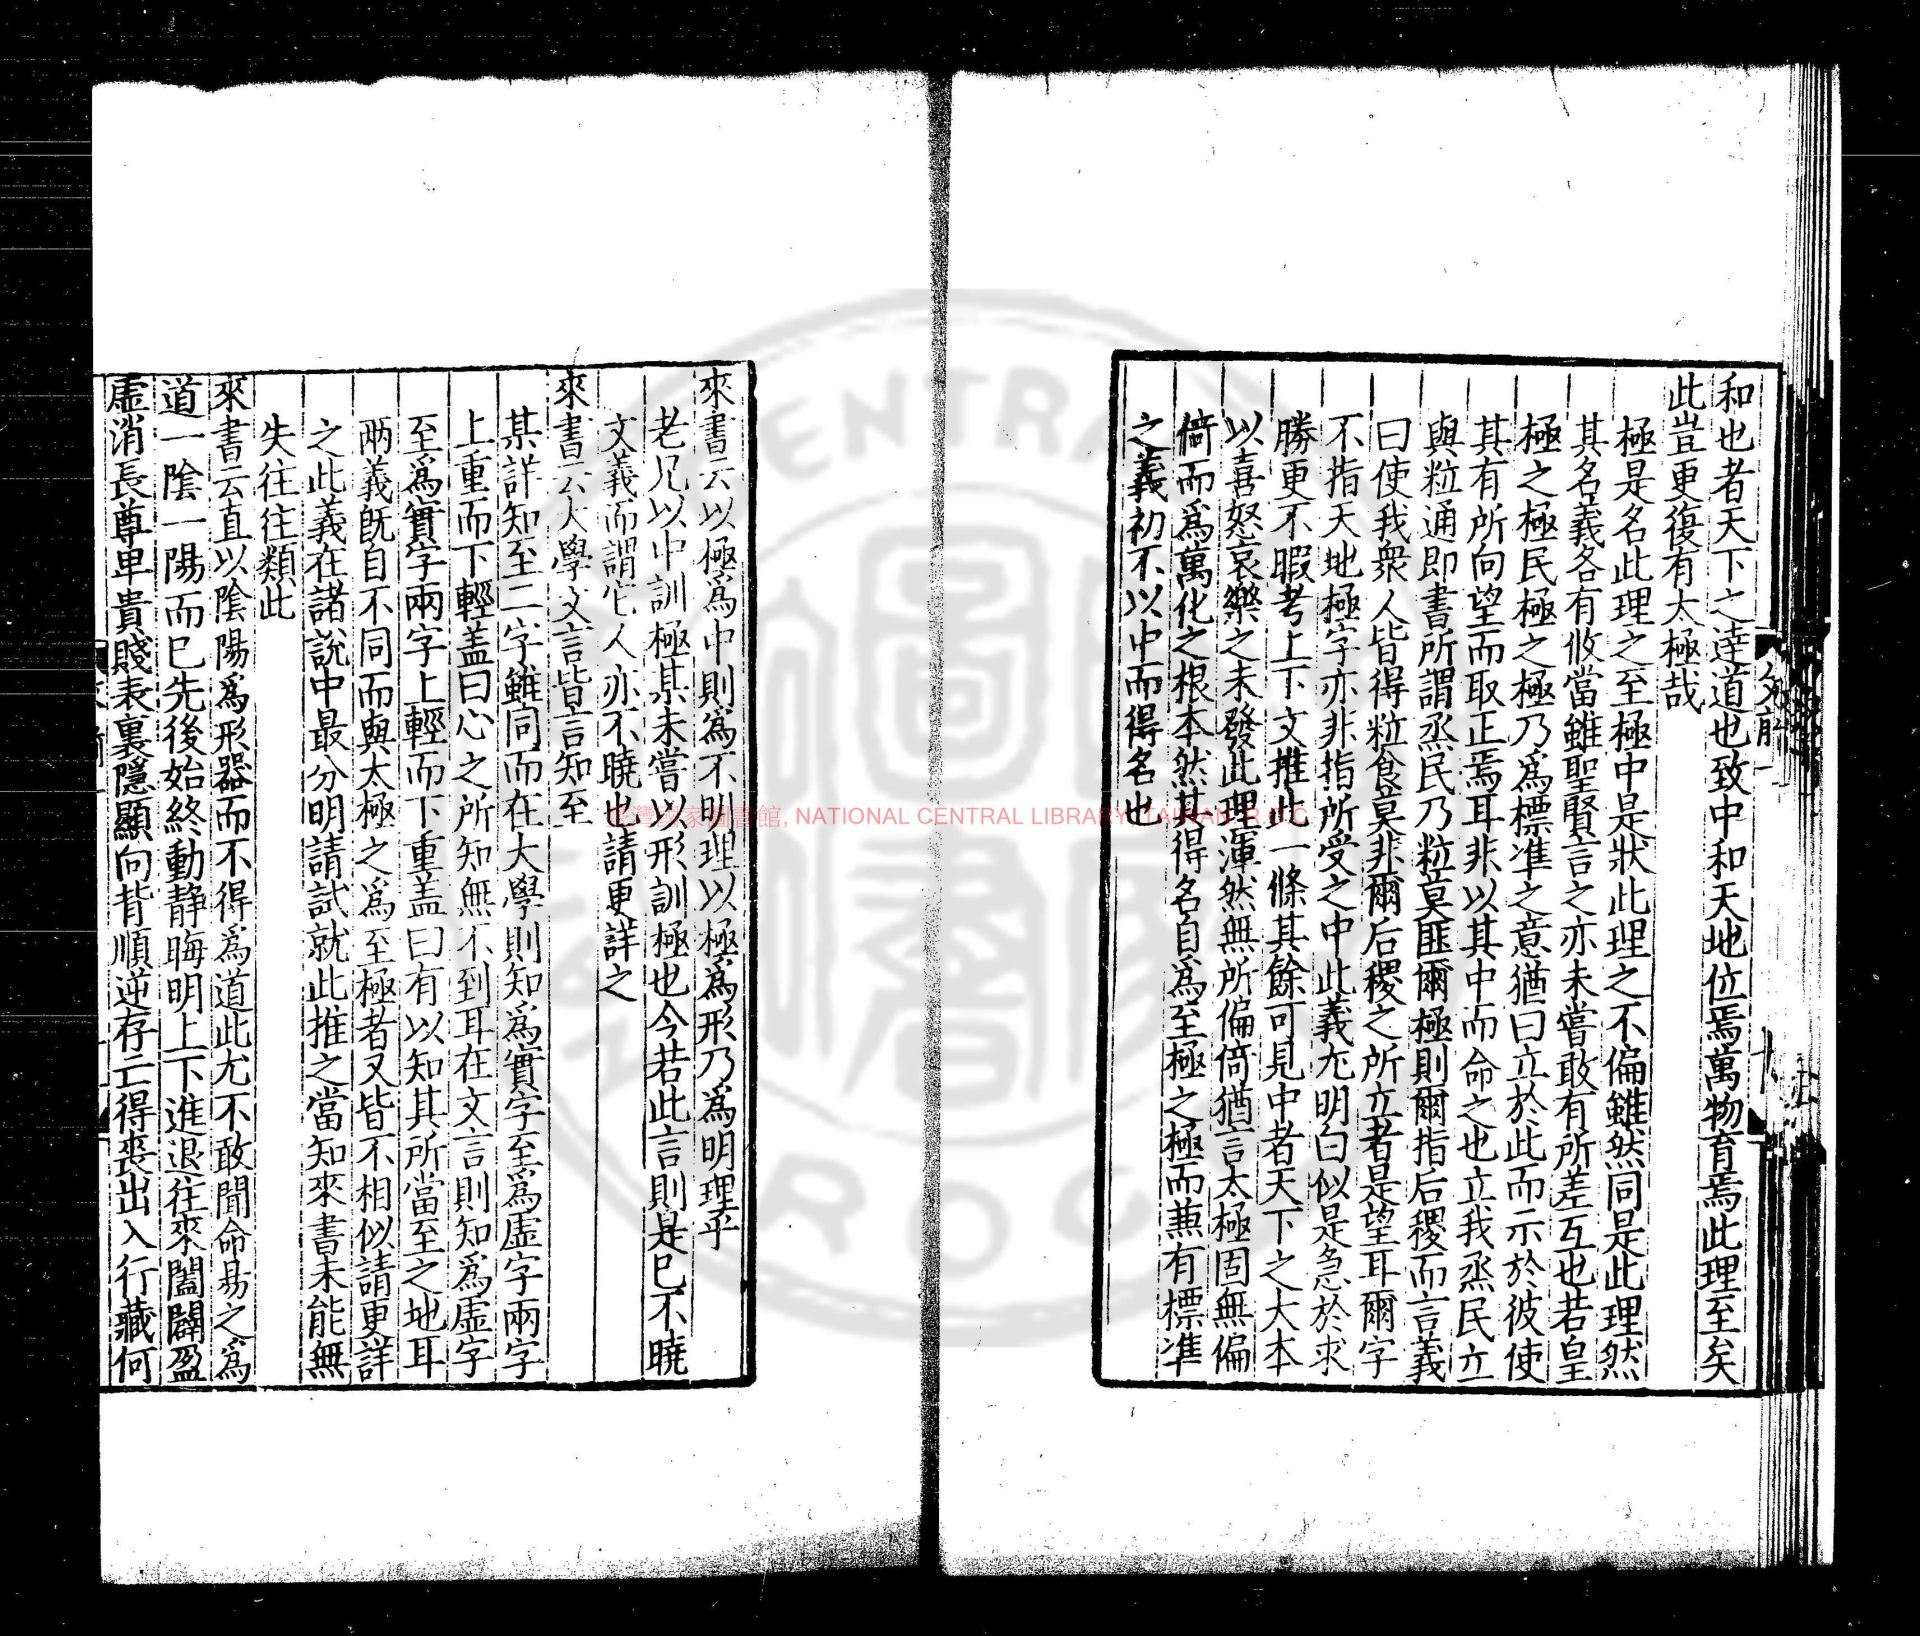 和也者天下之逹道也致中和天地位焉萬物育焉此理至矣
此豈更復有太極哉
極是名此理之至極中是狀此理之不偏雖然同是此理然
其名義各有攸當雖聖賢言之亦未嘗敢有所差互也若皇
極之極民極之極乃爲標凖之意猶曰立於此而示於彼使
其有所向望而取正焉耳非以其中而命之也立我烝民立
與粒通即書所謂烝民乃粒莫匪爾極則爾指后稷而言義
曰使我衆人皆得粒食莫非爾后稷之所立者是望耳爾字
不指天地極字亦非指所受之中此義尤明白似是急於求
勝更不暇考上下文推此一條其餘可見中者天下之大本
以喜怒哀樂之未發此理渾然無所偏倚猶言太極固無偏
倚而爲萬化之根本然其得名自爲至極之極而蕪有標凖
之義初不以中而得名也
來書云以極爲中則爲不明理以極爲形乃爲明理乎
老兄以中訓極某未嘗以形訓極也今若此言則是已不曉
文義而謂它人亦不曉也請更詳之
來書云大學文言皆言知至
某詳知至二字雖同而在大學則知爲實字至爲虚字兩字
上重而下輕盖曰心之所知無不到耳在文言則知爲虚字
至爲實字兩字上輕而下重盖曰有以知其所當至之地耳
兩義旣自不同而與太極之爲至極者又皆不相似請更詳
之此義在諸說中最分明請試就此推之當知來書未能無
失往往類此
來書云直以陰陽爲形器而不得爲道此尤不敢聞命易之爲
道一陰一陽而已先後始終動静晦明上下進退往來闔闢盈
虚消長尊卑貴賤表裏隱顯向背順逆存亡得喪出入行藏何
臺灣國家圖書館, NATIONAL CENTRAL LIBRARY, TAIWAN, R.O.C.